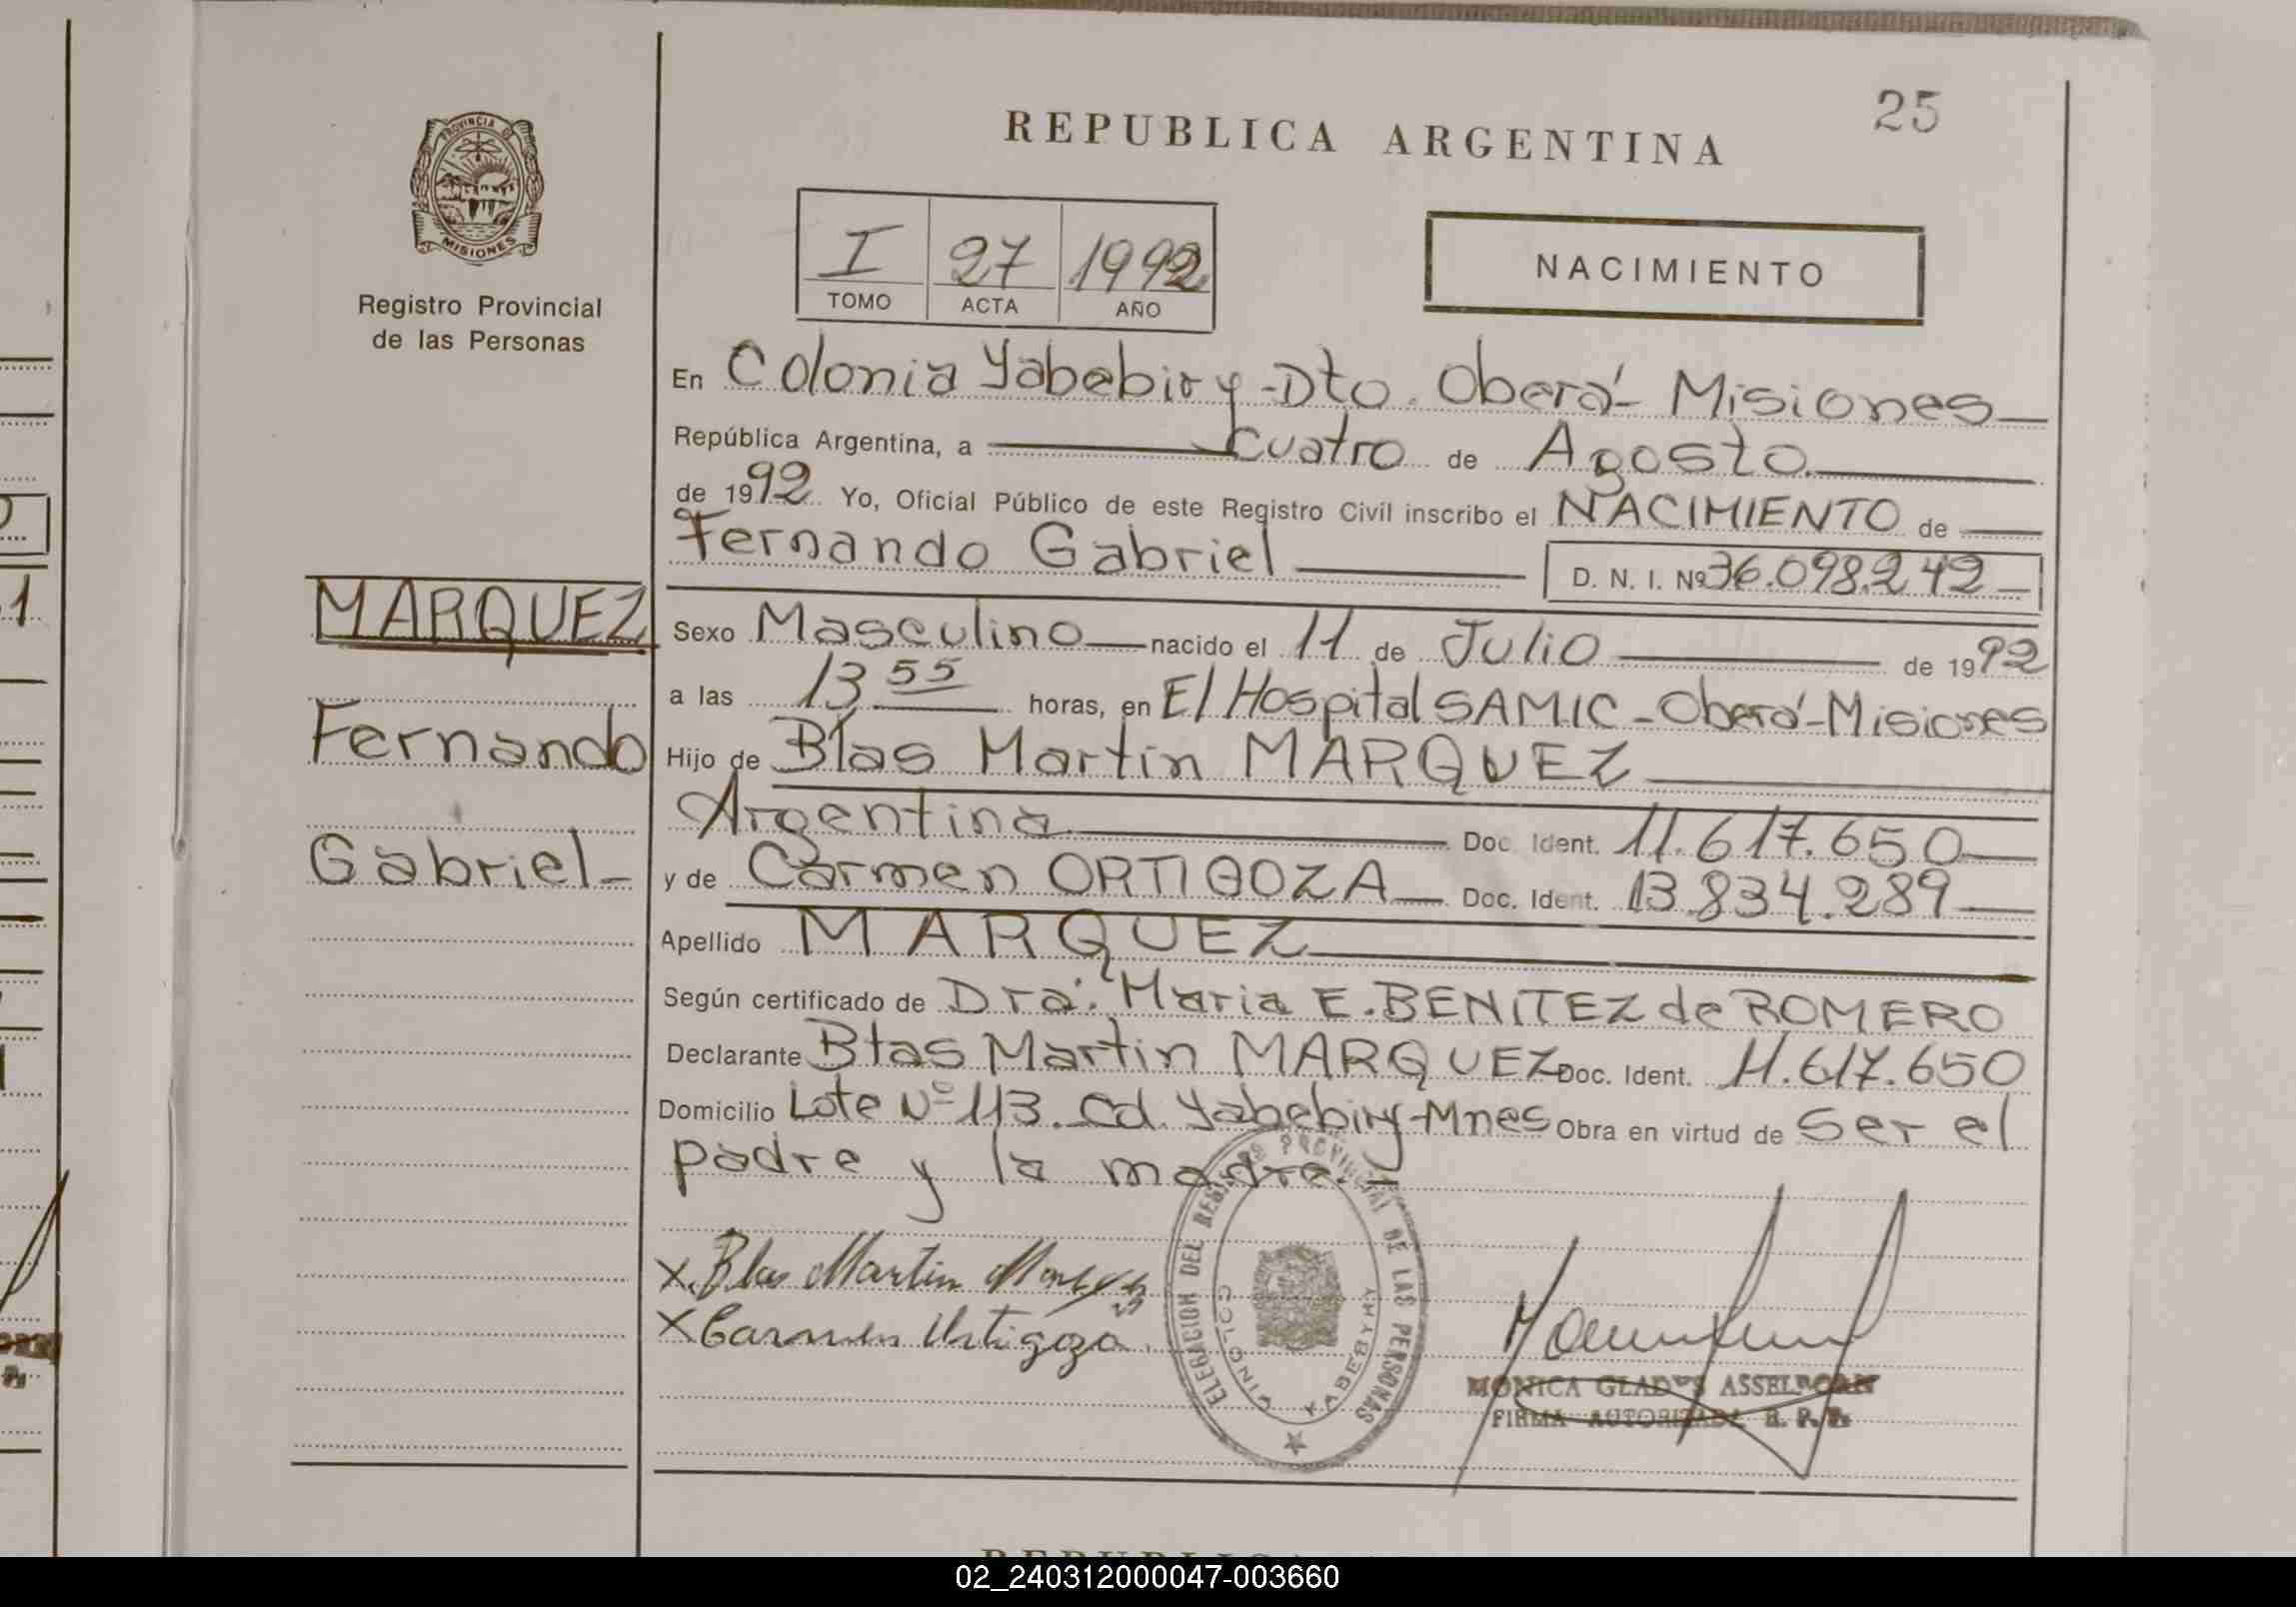 25
REPUBLICA ARGENTINA
PROVINCIA DE
MISIONES
Registro Provincial
de las Personas
I 27 1992
TOMO ACTA AÑO
NACIMIENTO
En Colonia Yabebiry-Dto. Oberá- Misiones
República Argentina, a cuatro de Agosto
de 1992 Yo, Oficial Público de este Registro Civil inscribo el NACIMIENTO de
Fernando Gabriel D. N. I. Nº 36.098.242
MARQUEZ
Fernando
Gabriel
Sexo Masculino nacido el 11 de Julio de 1992
a las 13 55 horas, en El Hospital SAMIC-Oberá-Misiones
Hijo de Blas Martin MARQUEZ
Argentina Doc. Ident. 11.617.650
y de Carmen ORTIGOZA Doc. Ident. 13.834.289
Apellido MARQUEZ
Según certificado de Dra. Maria E. BENITEZ de ROMERO
Declarante Blas Martin MARQUEZ Doc. Ident. 11.617.650
Domicilio Lote Nº 113. Cd. Yabebiry-Mnes Obra en virtud de ser el
padre y la madre.
X. Blas Martin
X Carmen Ortigoza
PROVINCIAL DE LAS PERSONAS
MONICA GLADYS
FIRMA AUTORIZADA R. P. P.
02_240312000047-003660